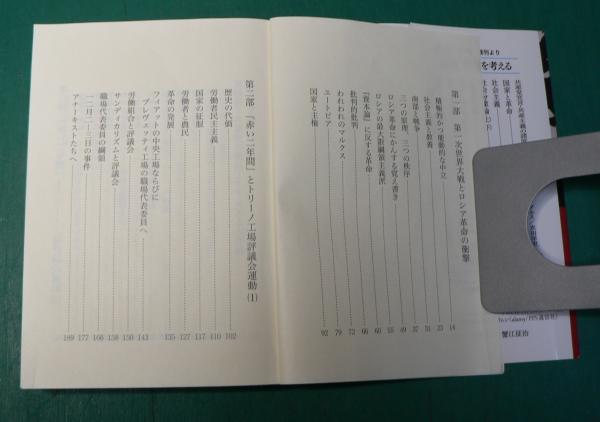 を考える
国家と革命
社会主義
蟹江征治
第一部 第一次世界大戦とロシア革命の衝撃
積極的かつ能動的な中立 14
社会主義と教養 23
南部と戦争 31
三つの原理、三つの秩序 37
ロシア革命にかんする覚え書き 49
ロシアの最大限綱領主義派 55
『資本論』に反する革命 60
批判的批判 66
われわれのマルクス 73
ユートピア 79
国家と主権 92
第二部 「赤い二年間」とトリーノ工場評議会運動(1)
歴史の代償 102
労働者民主主義 110
国家の征服 117
労働者と農民 127
革命の発展 135
フィアットの中央工場ならびに
ブレヴェッティ工場の職場代表委員へ 143
労働組合と評議会 150
サンディカリズムと評議会 158
職場代表委員の綱領 166
一二月二―三日の事件 177
アナーキストたちへ 189